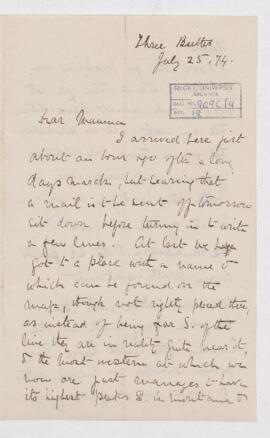 Three Buttes
July 25. 74.
McGILL UNIVERSITY
ARCHIVES
ACC. NO. 909C/4
REF. 18
Dear Mamma
I arrived here just
about an hour ago after a long
days march, but hearing that
a mail is to be sent off tomorrow
sit down before turning in to write
a few lines. At last we have
got to a place with a name &
which can be found on the
map, though not rightly placed there,
as instead of being far S. of the
line they are in reality quite near it,
& the most western at which we
now are just manages to have
its highest peaks S. in Montana &